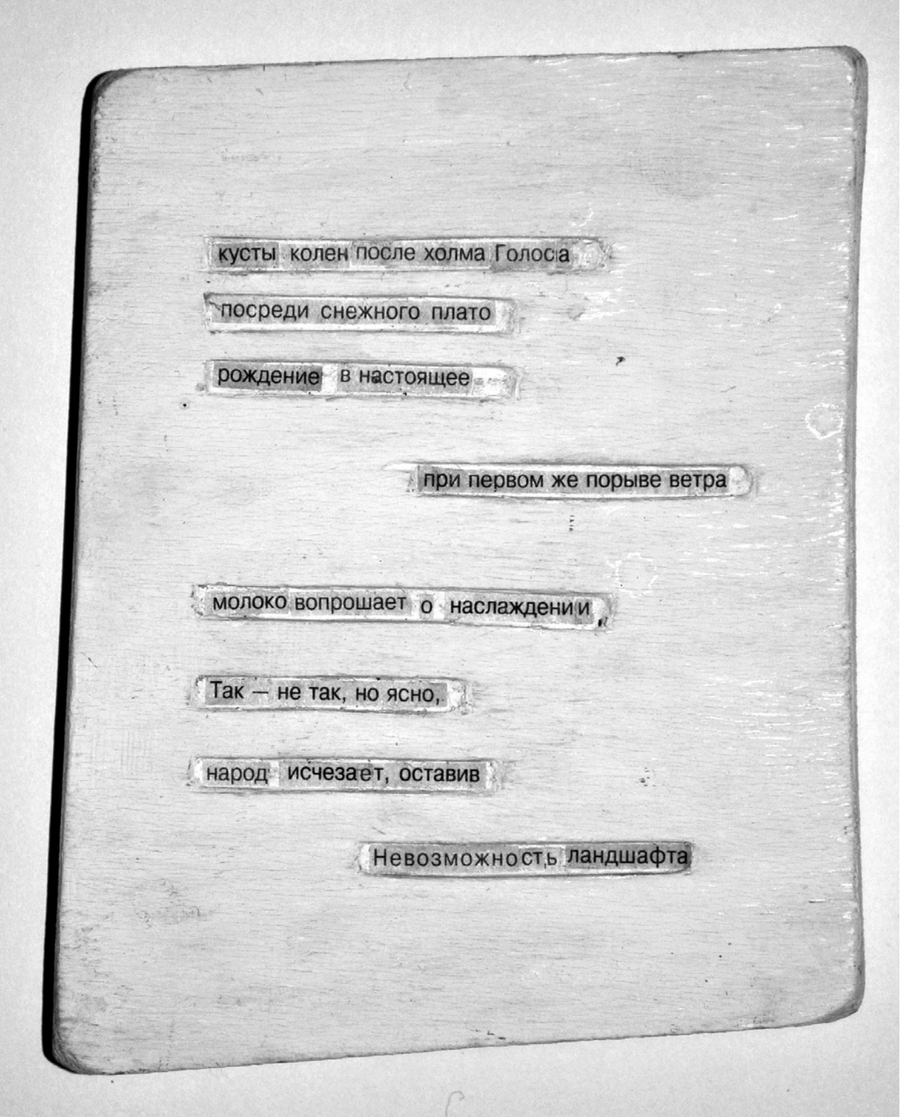 кусты колен после холма Голоса
посреди снежного плато
рождение в настоящее
при первом же порыве ветра
молоко вопрошает о наслаждении
Так — не так, но ясно,
народ исчезает, оставив
Невозможность ландшафта